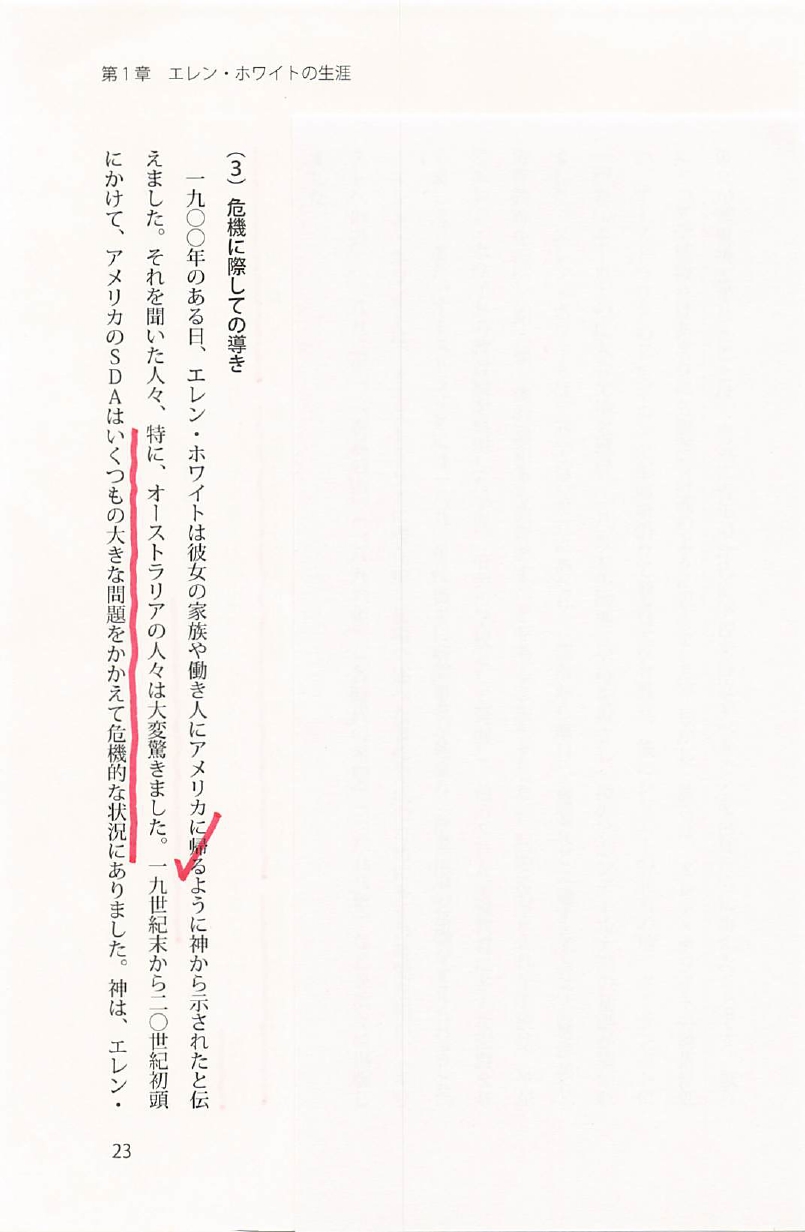 第1章　エレン・ホワイトの生涯
（3）危機に際しての導き
一九〇〇年のある日、エレン・ホワイトは彼女の家族や働き人にアメリカに帰るように神から示されたと伝
えました。それを聞いた人々、特に、オーストラリアの人々は大変驚きました。一九世紀末から二〇世紀初頭
にかけて、アメリカのＳＤＡはいくつもの大きな問題をかかえて危機的な状況にありました。神は、エレン・
23